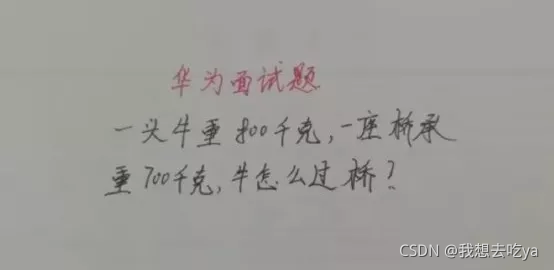 华为面试题
一头牛重800千克,一座桥承
重700千克,牛怎么过桥?
CSDN @我想去吃ya